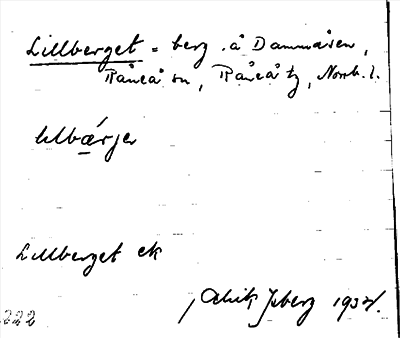 Lillberget = berg å Dammåsen,
Råneå sn, Råneå tg, Norrb. l.
lılbǽrjeı
Lillberget ek
Isberg 193
222